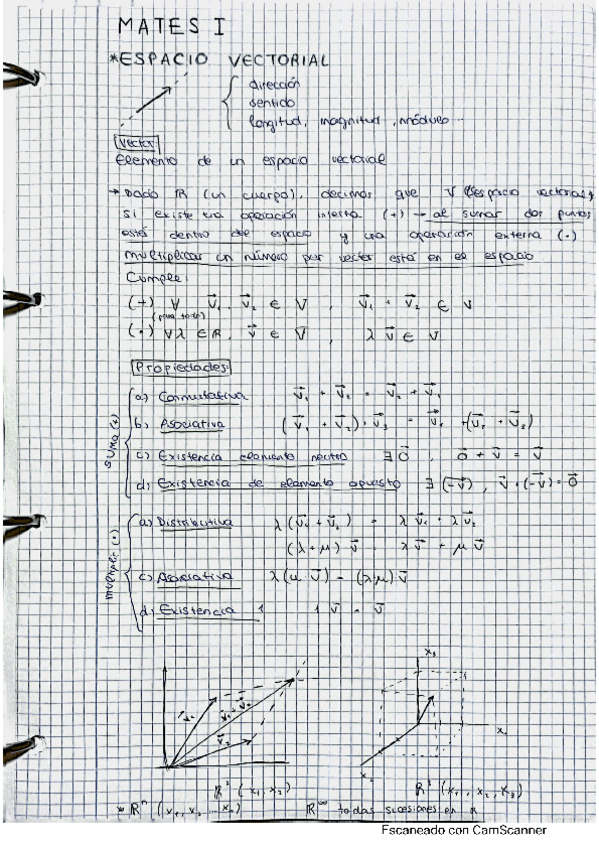 MATES I
*ESPACIO VECTORIAL
dirección
sentido
longitud, magnitud, módulo ...
Vector
Elemento de un espacio vectorial
→ Dado ℝ (un cuerpo), decimos que V (espacio vectorial)
si existe una operación interna (+) → al sumar dos puntos
está dentro del espacio y una operación externa (·)
multiplicar un número por vector está en el espacio
Cumple:
(+) ∀ v⃗₁, v⃗₂ ∈ V , v⃗₁ + v⃗₂ ∈ V
(para todo)
(·) ∀λ ∈ ℝ, v⃗ ∈ V , λ v⃗ ∈ V
Propiedades
suma (+)
a) Conmutativa v⃗₁ + v⃗₂ = v⃗₂ + v⃗₁
b) Asociativa (v⃗₁ + v⃗₂) + v⃗₃ = v⃗₁ + (v⃗₂ + v⃗₃)
c) Existencia elemento neutro ∃ 0⃗ , 0⃗ + v⃗ = v⃗
d) Existencia de elemento opuesto ∃ (-v⃗), v⃗ + (-v⃗) = 0⃗
a) Distributiva λ (v⃗₁ + v⃗₂) = λ v⃗₁ + λ v⃗₂
(λ + μ) v⃗ = λ v⃗ + μ v⃗
c) Asociativa λ (μ v⃗) = (λμ) v⃗
d) Existencia 1 1 v⃗ = v⃗
v⃗₁
v⃗₁ + v⃗₂
v⃗₂
x₃
ℝ² (x₁, x₂)
ℝ³ (x₁, x₂, x₃)
* ℝⁿ (x₁, x₂ ... xₙ) ℝ^∞ todas sucesiones en ℝ
Escaneado con CamScanner